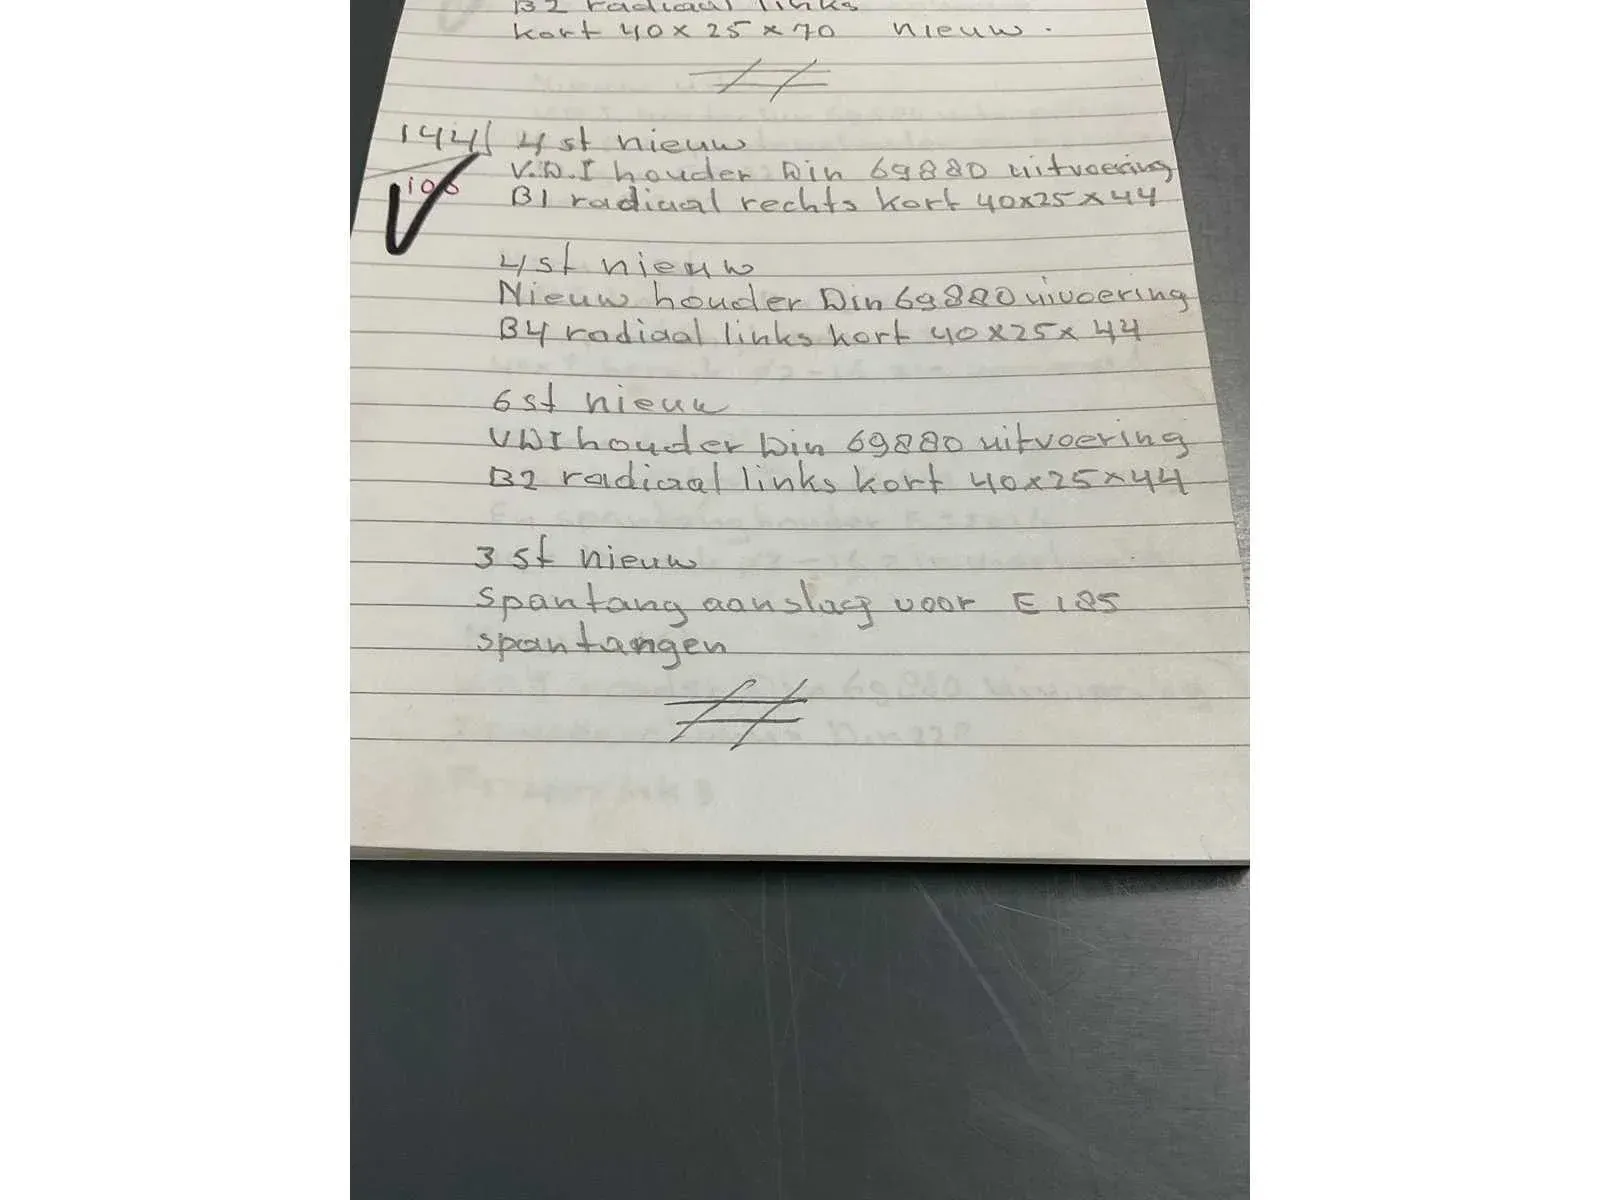 B2 radiaal links
kort 40 x 25 x 70 nieuw.
144 4 st nieuw
V.D.I houder Din 69880 uitvoering
106
B1 radiaal rechts kort 40x25x44
4 st nieuw
Nieuw houder Din 69880 uivoering
B4 radiaal links kort 40x25x44
6 st nieuw
VDI houder Din 69880 uitvoering
B2 radiaal links kort 40x25x44
3 st nieuw
Spantang aanslag voor E185
spantangen